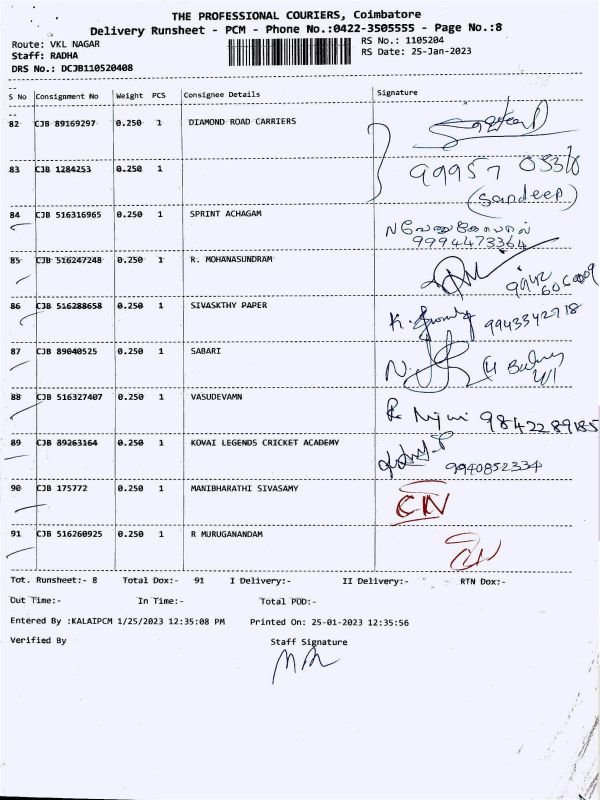 THE PROFESSIONAL COURIERS, Coimbatore
Delivery Runsheet - PCM - Phone No.:0422-3505555 - Page No.:8
Route: VKL NAGAR RS No.: 1105204
Staff: RADHA RS Date: 25-Jan-2023
DRS No.: DCJB110520408
S No Consignment No Weight PCS Consignee Details Signature
82 CJB 89169297 0.250 1 DIAMOND ROAD CARRIERS
83 CJB 1284253 0.250 1
(Sandeep)
84 CJB 516316965 0.250 1 SPRINT ACHAGAM
9994473364
85 CJB 516247248 0.250 1 R. MOHANASUNDRAM
86 CJB 516288658 0.250 1 SIVASKTHY PAPER
9943342718
87 CJB 89040525 0.250 1 SABARI
88 CJB 516327407 0.250 1 VASUDEVAMN
9842289185
89 CJB 89263164 0.250 1 KOVAI LEGENDS CRICKET ACADEMY
9940852334
90 CJB 175772 0.250 1 MANIBHARATHI SIVASAMY CN
91 CJB 516260925 0.250 1 R MURUGANANDAM CN
Tot. Runsheet:- 8 Total Dox:- 91 I Delivery:- II Delivery:- RTN Dox:-
Out Time:- In Time:- Total POD:-
Entered By :KALAIPCM 1/25/2023 12:35:08 PM Printed On: 25-01-2023 12:35:56
Verified By Staff Signature